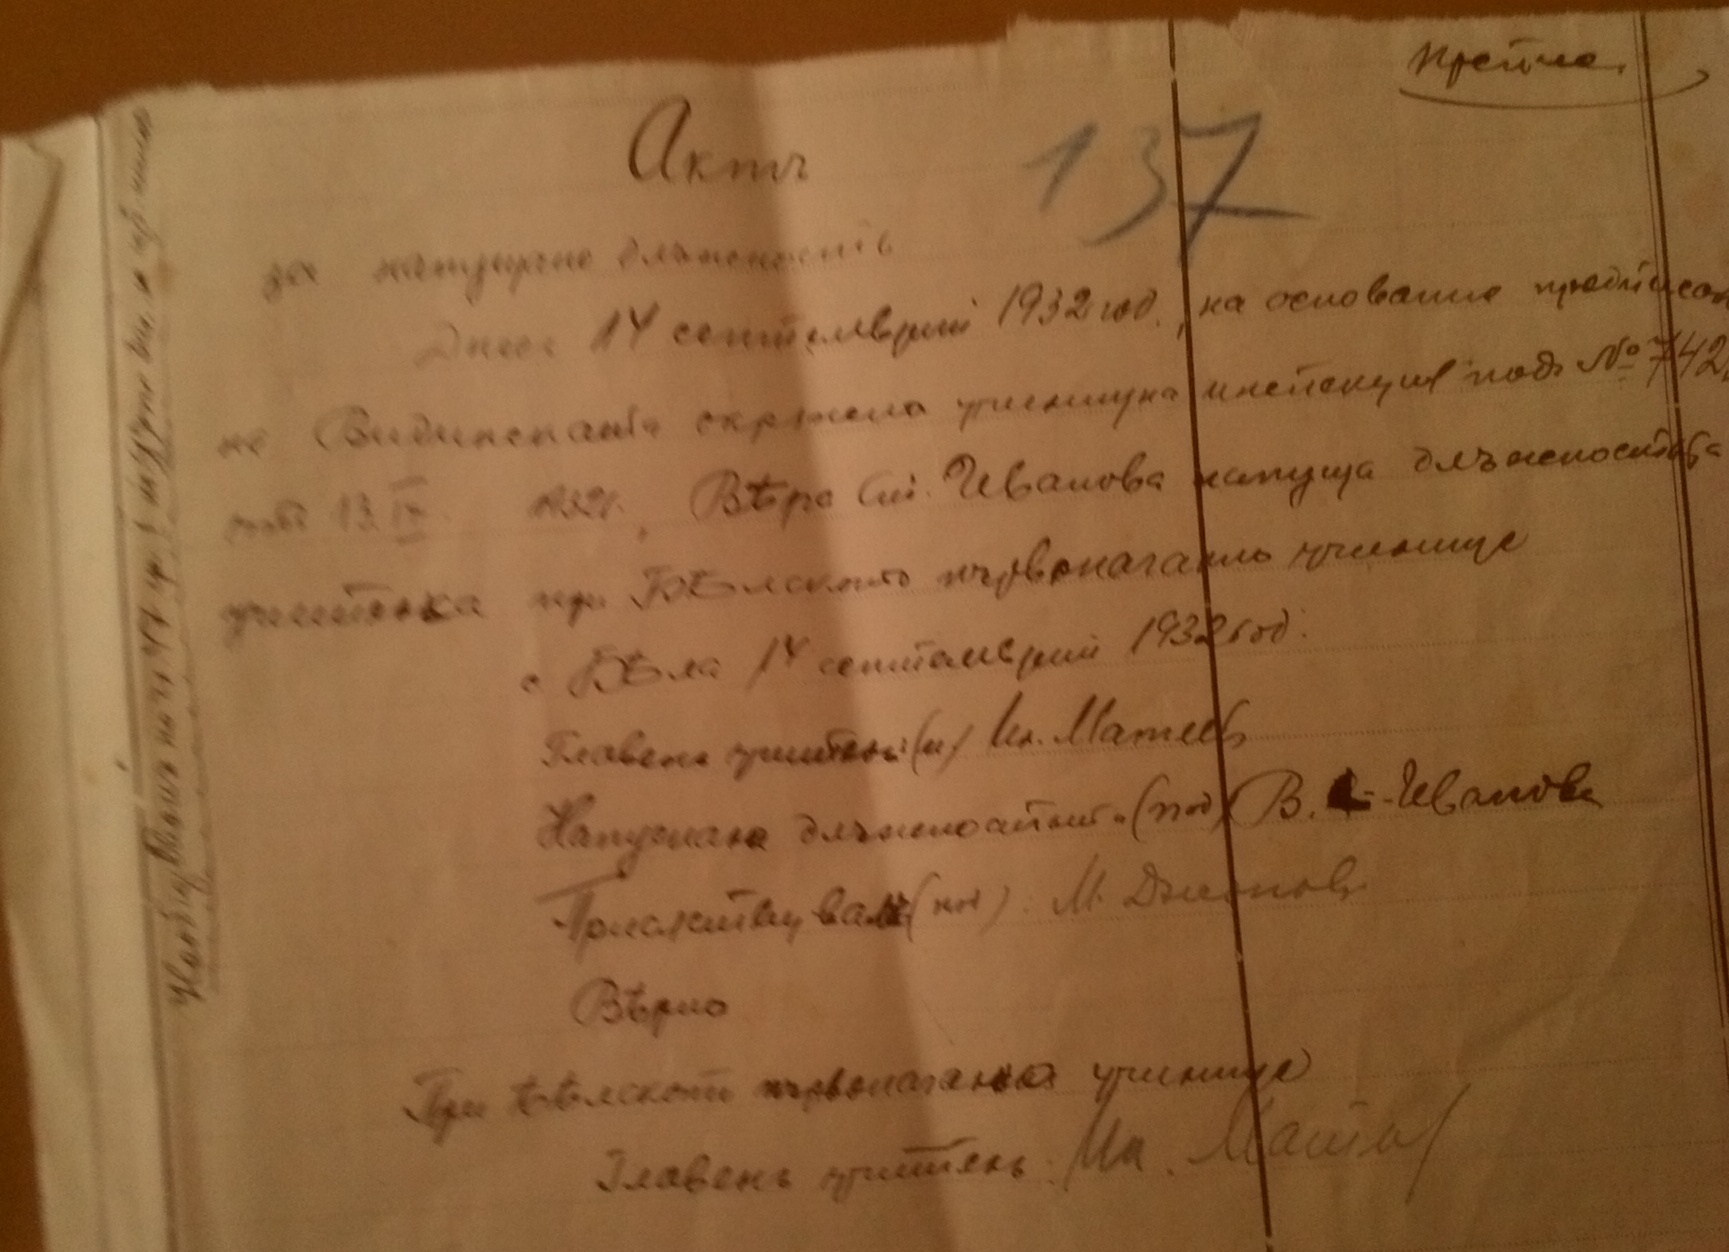 Препис
Актъ
137
за напущане длъжность
Днесъ 14 септемврий 1932 год., на основание предписа
на Видинската окръжна училищна инспекция подъ № 742
отъ 13.IX. 1932 г., Вѣра Ил. Иванова напуща длъжностьта
учителка при Бѣлското първоначално училище
с. Бѣла 14 септемврий 1932 год.
Главенъ учитель (п) Ил. Матеевъ
Напуснала длъжностьта (под) В. Иванова
Присѫтствувалъ (под) М.
Вѣрно
При Бѣлското първоначално училище
Главенъ учитель: